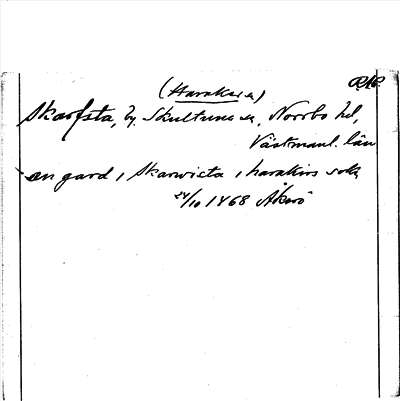 RAP.
(Harakers sn)
Skarfsta, by, Skultuna sn, Norrbo hd,
Västmanl. län
en gard i Skarwista i harakirs sokn
24/10 1468 Åkerö